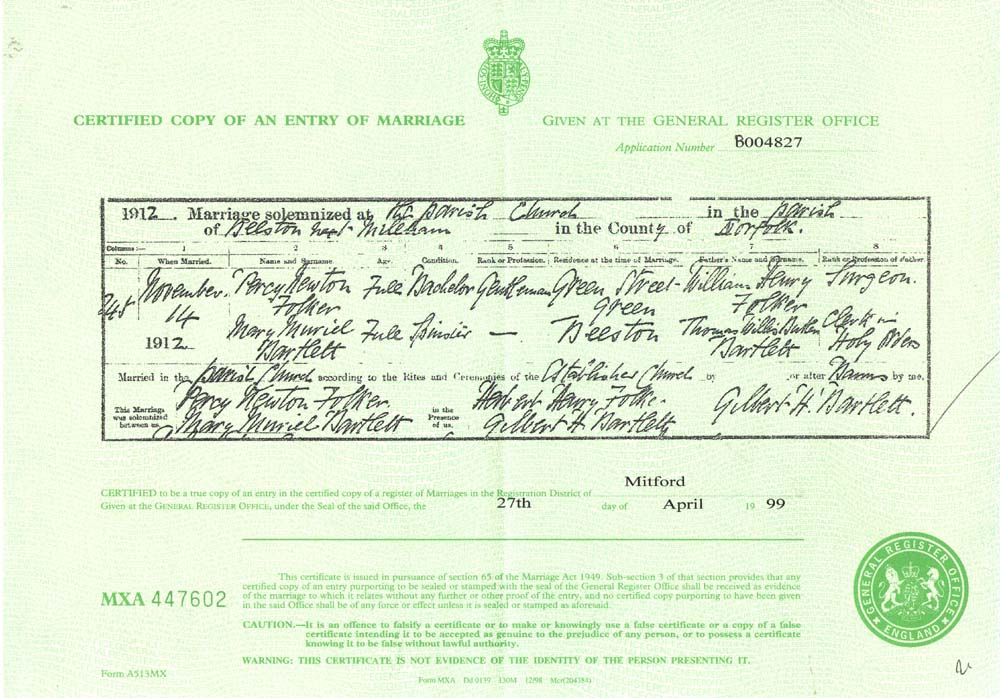 CERTIFIED COPY OF AN ENTRY OF MARRIAGE
GIVEN AT THE GENERAL REGISTER OFFICE
Application Number B004827
1912. Marriage solemnized at the parish Church in the parish
of Beeston next Mileham in the County of Norfolk.
Columns:— 1 2 3 4 5 6 7 8
No. When Married. Name and Surname. Age. Condition. Rank or Profession. Residence at the time of Marriage. Father's Name and Surname. Rank or Profession of Father.
248 November Percy Newton Full Bachelor Gentleman Green Street William Henry Surgeon.
14 Folker Green Folker
1912 Mary Muriel Full Spinster — Beeston Thomas Willis Bartlett Clerk in
Bartlett Holy Orders
Married in the parish Church according to the Rites and Ceremonies of the Established Church by or after Banns by me,
This Marriage was solemnized between us, Percy Newton Folker in the Presence of us, Herbert Henry Folker Gilbert H Bartlett.
Mary Muriel Bartlett Gilbert H Bartlett
CERTIFIED to be a true copy of an entry in the certified copy of a register of Marriages in the Registration District of Mitford
Given at the GENERAL REGISTER OFFICE, under the Seal of the said Office, the 27th day of April 19 99
This certificate is issued in pursuance of section 65 of the Marriage Act 1949. Sub-section 3 of that section provides that any
certified copy of an entry purporting to be sealed or stamped with the seal of the General Register Office shall be received as evidence
of the marriage to which it relates without any further or other proof of the entry, and no certified copy purporting to have been given
in the said Office shall be of any force or effect unless it is sealed or stamped as aforesaid.
MXA 447602
CAUTION.—It is an offence to falsify a certificate or to make or knowingly use a false certificate or a copy of a false
certificate intending it to be accepted as genuine to the prejudice of any person, or to possess a certificate
knowing it to be false without lawful authority.
WARNING: THIS CERTIFICATE IS NOT EVIDENCE OF THE IDENTITY OF THE PERSON PRESENTING IT.
GENERAL REGISTER OFFICE ENGLAND
Form A513MX
Form MXA Dd 0139 130M 12/98 Mcr(204384)